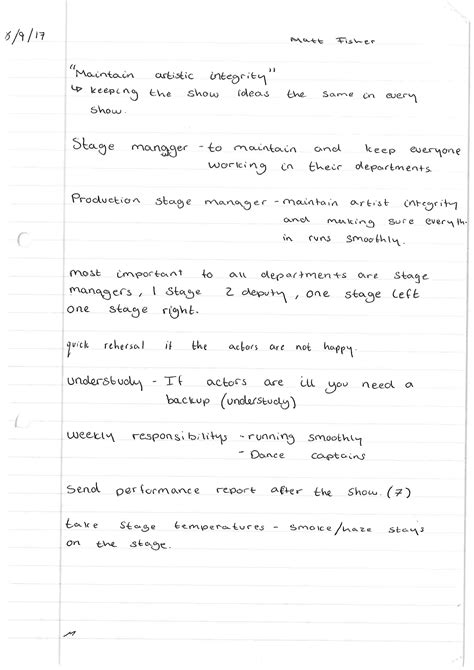 8/9/17
Matt Fisher
"Maintain artistic integrity"
↳ keeping the show ideas the same in every
show.
Stage manager - to maintain and keep everyone
working in their departments.
Production stage manager - maintain artist integrity
and making sure everyth-
in runs smoothly.
most important to all departments are stage
managers, 1 stage 2 deputy, one stage left
one stage right.
quick rehersal if the actors are not happy.
understudy - If actors are ill you need a
backup (understudy)
weekly responsibilitys - running smoothly
- Dance captains
Send performance report after the show. (7)
take stage temperatures - smoke/haze stays
on the stage.